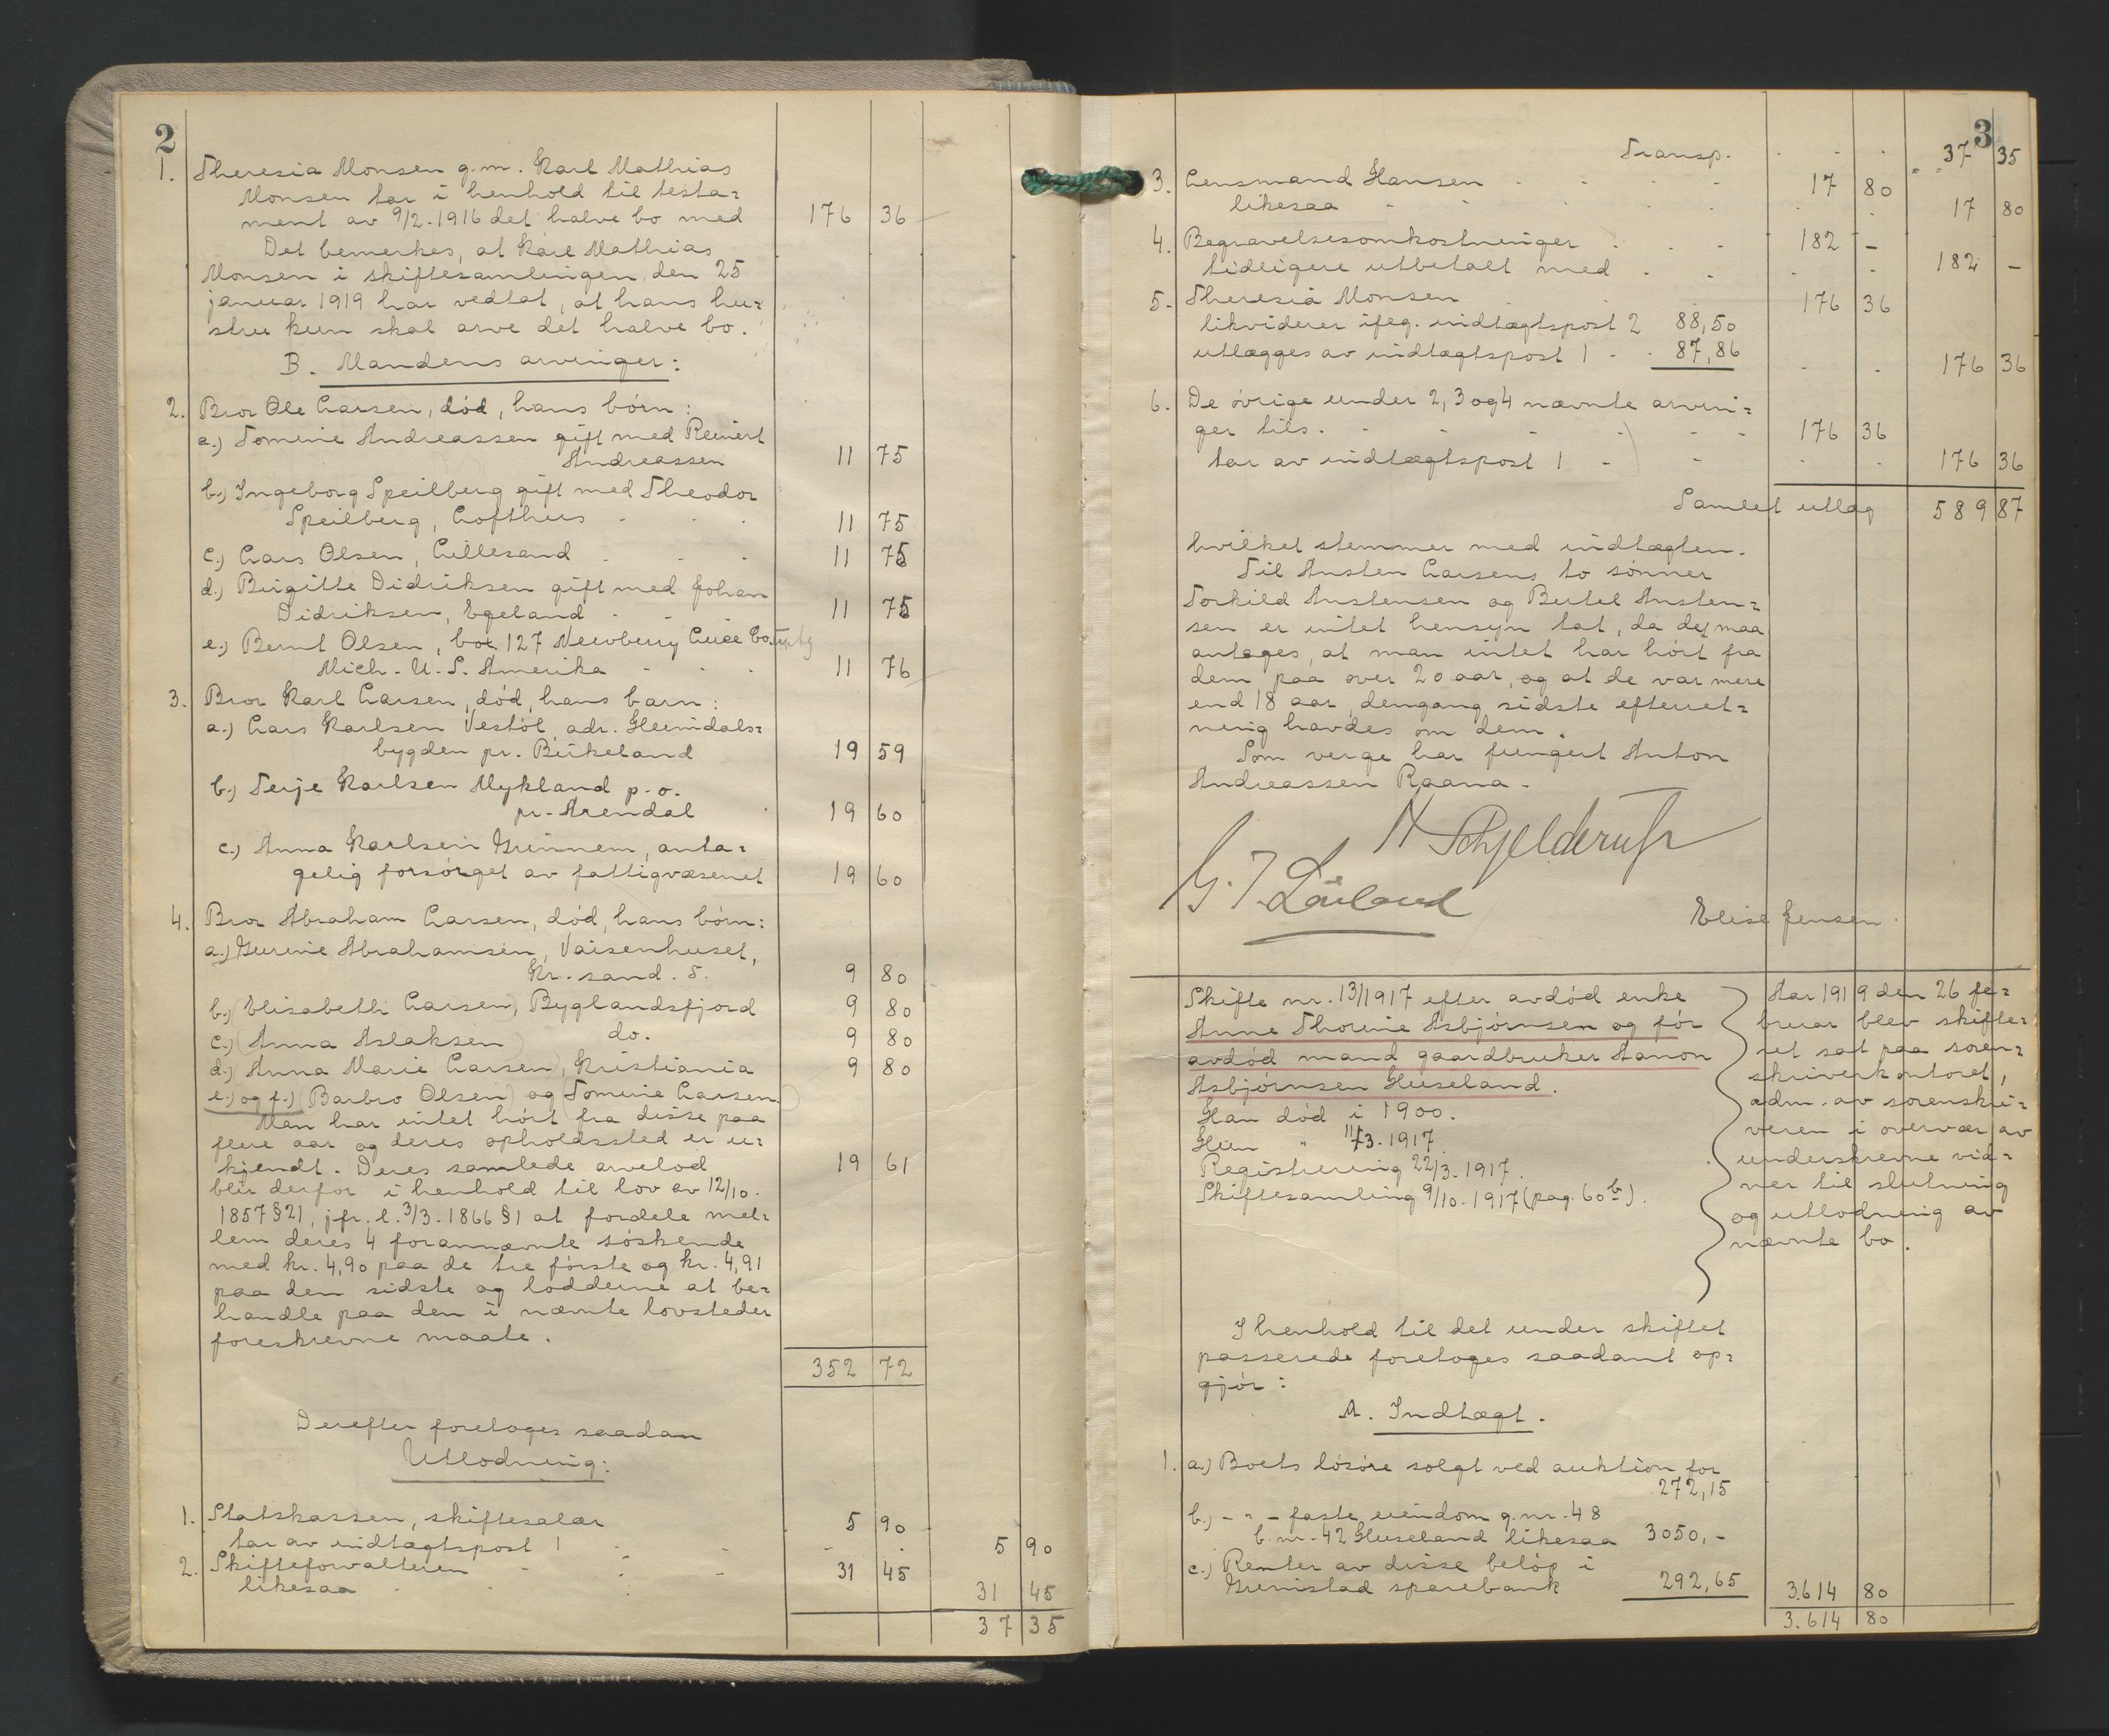 2
1. Theresia Monsen g.m. Karl Mathias
Monsen tar i henhold til testa=
ment av 9/2-1916 det halve bo med 176 36
Det bemerkes, at Karl Mathias
Monsen i skiftesamlingen den 25
januar 1919 har vedtat, at hans hu=
stru kun skal arve det halve bo.
B. Mandens arvinger:
2. Bror Ole Larsen, død, hans børn:
a.) Tomine Andreassen gift med Reinert
Andreassen 11 75
b.) Ingeborg Speilberg gift med Theodor
Speilberg, Lofthus 11 75
c.) Lars Olsen, Lillesand 11 75
d.) Birgitte Didriksen gift med Johan
Didriksen, Egeland 11 75
e.) Bernt Olsen, box 127 Newberry Luce Co.
Mich. U.S. Amerika 11 76
3. Bror Karl Larsen, død, hans barn:
a.) Lars Karlsen Vestøl, adr. Heimdals=
bygden pr. Birkeland 19 59
b.) Terje Karlsen Mykland p.o.
pr. Arendal 19 60
c.) Anna Karlsen Grinnem, anta=
gelig forsørget av fattigvæsenet 19 60
4. Bror Abraham Larsen, død, hans børn:
a.) Gurine Abrahamsen, Vaisenhuset,
Kr.sand. S. 9 80
b.) (Elisabeth Larsen), Byglandsfjord 9 80
c.) (Anna Aslaksen) do. 9 80
d.) Anna Marie Larsen), Kristiania 9 80
e.) og f.) (Barbro Olsen) og (Tomine Larsen)
Man har intet hørt fra disse paa
flere aar og deres opholdssted er u=
kjendt. Deres samlede arvelod 19 61
blir derfor i henhold til lov av 12/10.
1857 § 21, jfr. l. 3/3. 1866 § 1 at fordele mel=
lem deres 4 forannævnte søskende
med kr. 4,90 paa de tre første og kr. 4,91
paa den sidste og lodderne at be=
handle paa den i nævnte lovsteder
foreskrevne maate.
352 72
Derefter foretoges saadan
Utlodning:
1. Statskassen, skiftesalær 5 90
tar av indtægtspost 1 5 90
2. Skifteforvalteren 31 45
likesaa 31 45
37 35
3
Transp. 37 35
3. Lensmand Hansen 17 80
likesaa 17 80
4. Begravelsesomkostninger 182 -
tidligere utbetalt med 182 -
5. Theresia Monsen 176 36
likviderer ifølg. indtægtspost 2 88,50
utlægges av indtægtspost 1 87,86 176 36
6. De øvrige under 2, 3 og 4 nævnte arvin=
ger tils. 176 36
tar av indtægtspost 1 176 36
Samlet utlæg 589 87
hvilket stemmer med indtægten.
Til Austen Larsens to sønner
Torkild Austensen og Bertel Austen=
sen er intet hensyn tat, da det maa
antages, at man intet har hørt fra
dem paa over 20 aar, og at de var mere
end 18 aar, dengang sidste efterret=
ning havdes om dem.
Som verge har fungert Anton
Andreassen Raana.
H Schjelderup
G. T. Løiland
Elise Jensen.
Skifte nr. 13/1917 efter avdød enke
Anne Thorine Asbjørnsen og før
avdød mand gaardbruker Aanon
Asbjørnsen Huseland.
Han død i 1900.
Hun " 11/3. 1917.
Registrering 22/3. 1917.
Skiftesamling 9/10. 1917 (pag. 60 b).
Aar 1919 den 26 fe=
bruar blev skifte=
ret sat paa soren=
skriverkontoret,
adm. av sorenskri=
veren i overvær av
underskrevne vid=
ner til slutning
og utlodning av
nævnte bo.
I henhold til det under skiftet
passerede foretoges saadant op=
gjør:
A. Indtægt.
1. a.) Boets løsøre solgt ved auktion for
272,15
b.) - " - faste eiendom g.nr. 48
b.nr. 42 Huseland likesaa 3050,-
c.) Renter av disse beløp i
Grimstad sparebank 292,65 3.614 80
3.614 80